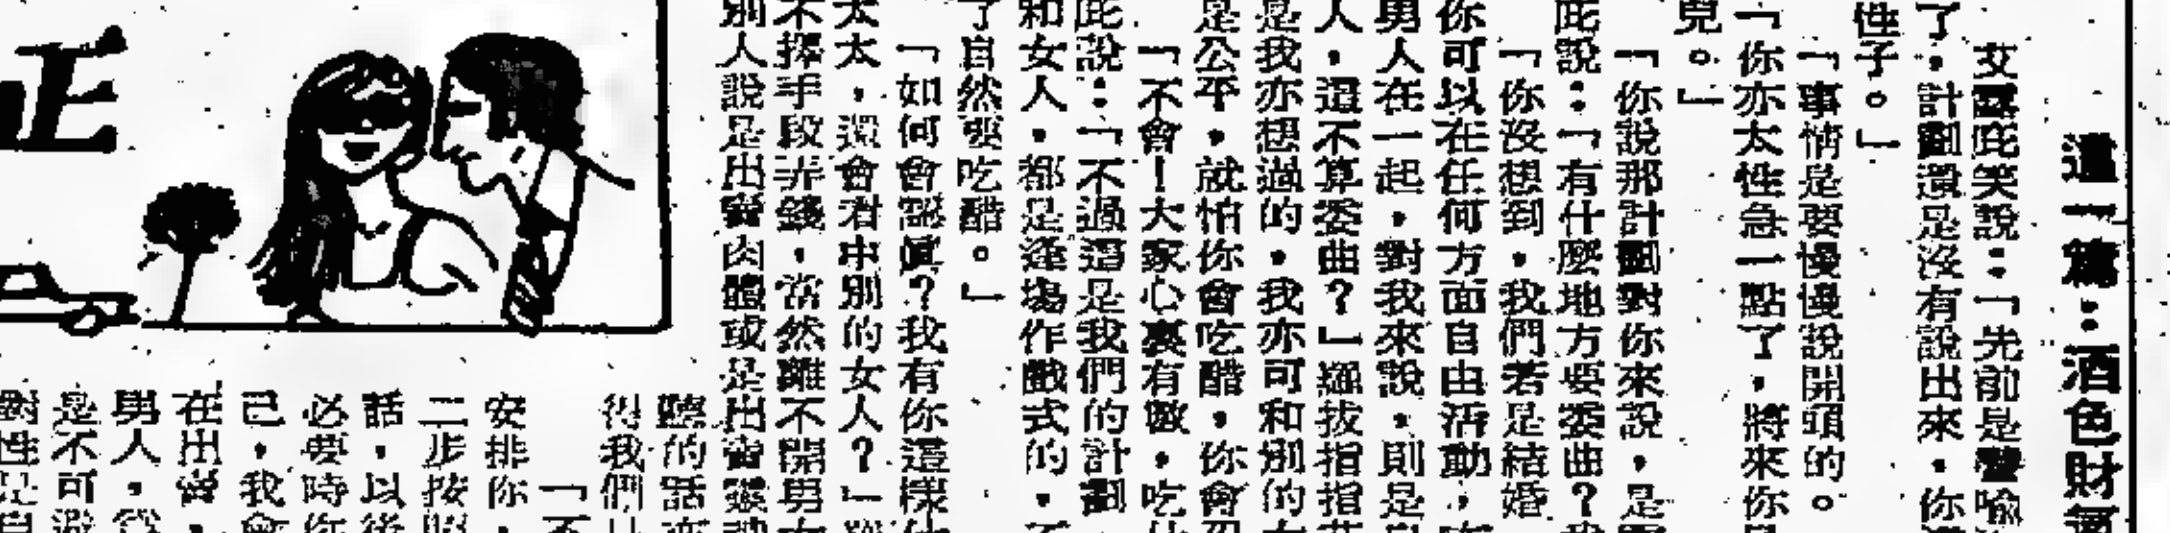 這一篇：酒色財氣
艾露庇笑說：「先前是譬喻
了，計劃還是沒有說出來，你
性子。」
「事情是要慢慢說開頭的。
「你亦太性急一點了，將來你
兒。」
「你說那計劃對你來說，是
庇說：「有什麼地方要委曲？我
「你沒想到，我們若是結婚
你可以在任何方面自由活動，
男人在一起，對我來說，則是
人，還不算委曲？」羅拔指指艾
是我亦想過的，我亦可和別的女
是公平，就怕你會吃醋，你會
「不會！大家心裏有數，吃
庇說：「不過這是我們的計劃
和女人，都是逢場作戲式的，不
了自然要吃醋。」
「如何會認真？我有你這樣
太太，還會看中別的女人？」羅
不擇手段弄錢，當然離不開男女
別人說是出賣肉體或是出賣靈
聽的話
得我們
「不
安排你，
二步按照
話，以後
必要時你
己，我會
在出賣，
男人，
是不可避
對性是自
正